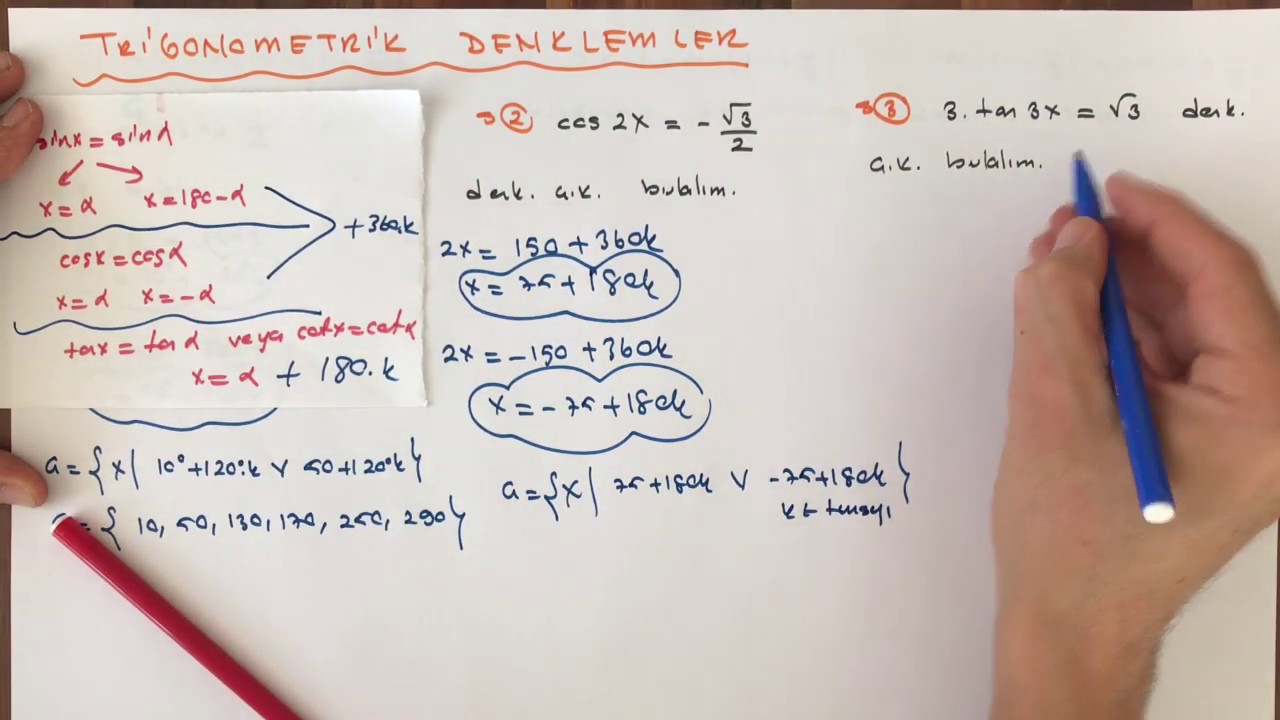 TRİGONOMETRİK DENKLEMLER
sinx = sinα
x = α x = 180 - α
+ 360.k
cosx = cosα
x = α x = -α
tax = tanα veya cotx = cotα
x = α + 180.k
a = {x| 10° + 120°.k ∨ 50 + 120°k}
= { 10, 50, 130, 170, 250, 290}
⇒ ② cos 2x = - √3/2
denk. a.k. bulalım.
2x = 150 + 360k
x = 75 + 180k
2x = -150 + 360k
x = -75 + 180k
a = {x| 75 + 180k ∨ -75 + 180k}
k ∈ tamsayı
⇒ ③ 3. tan 3x = √3 denk.
a.k. bulalım.